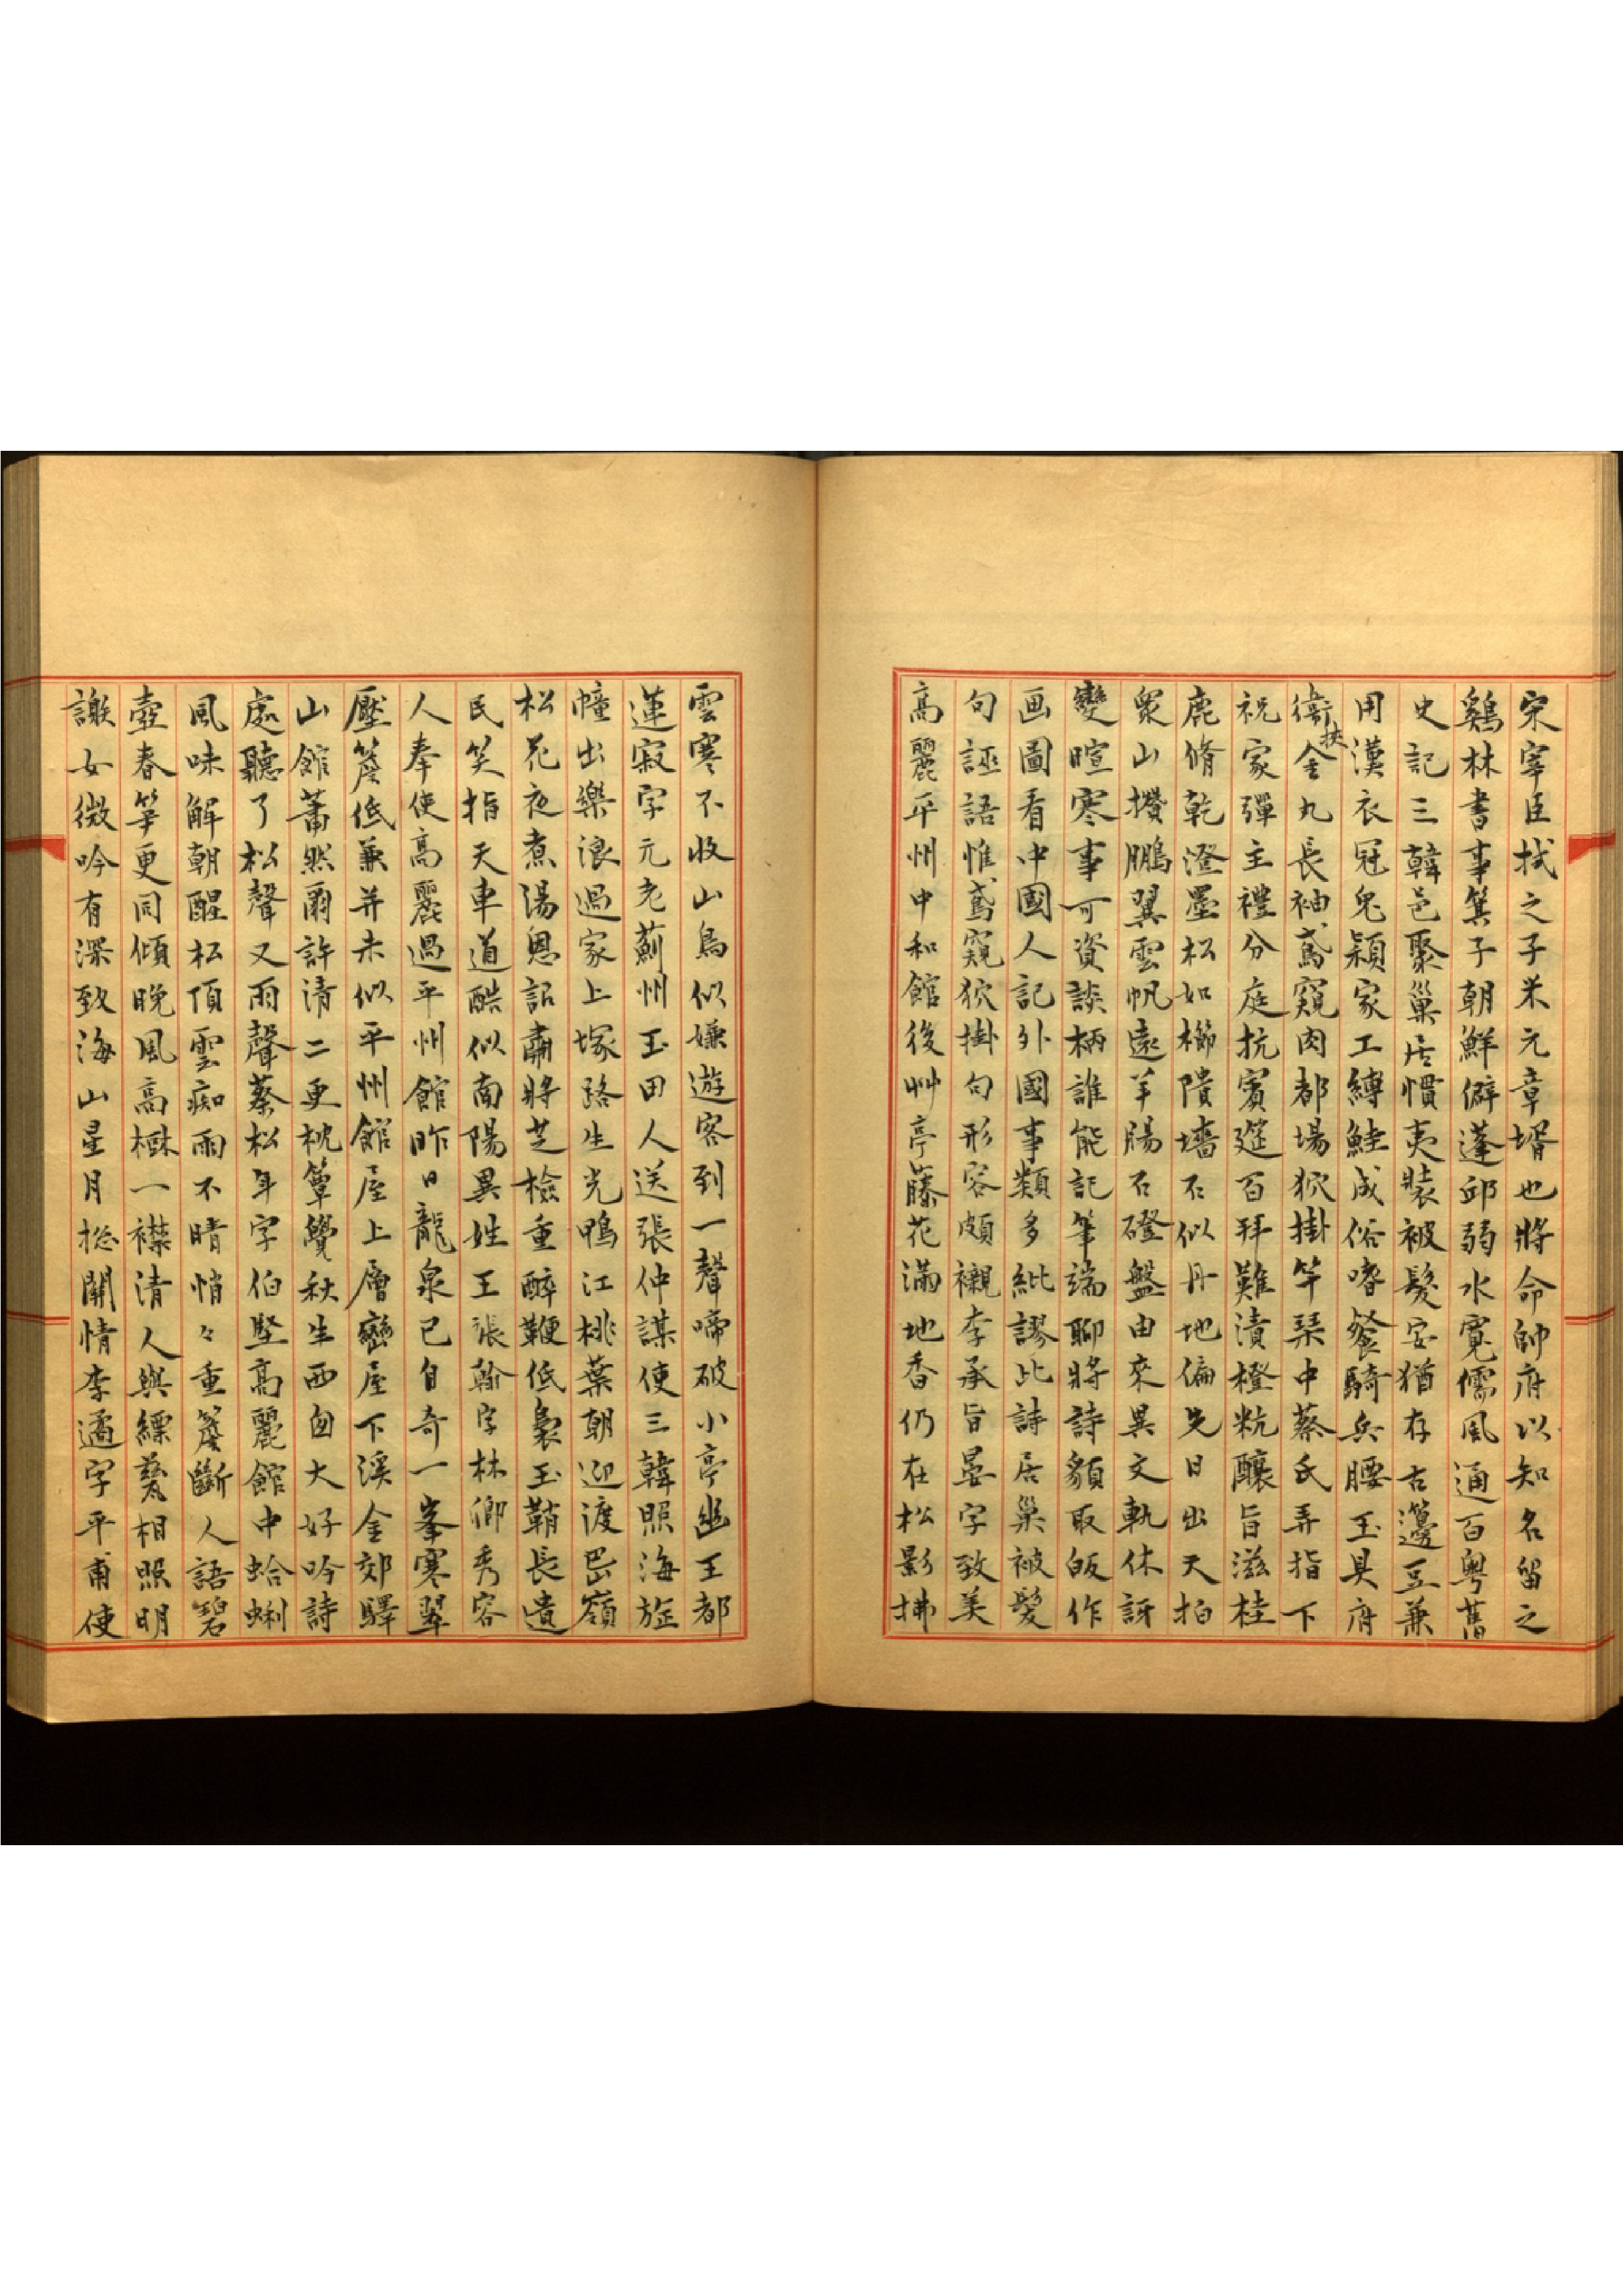 宋宰臣拭之子米元章壻也將命帥府以知名留之
鷄林書事箕子朝鮮僻蓬邱弱水寬儒風通百粵舊
史記三韓邑聚巢居慣夷裝被髮安猶存古籩豆兼
用漢衣冠兔穎家工縛鮭成俗嗜餐騎兵腰玉具府
衛挾金丸長袖鳶窺肉都場狖掛竿琹中蔡氏弄指下
祝家彈主禮分庭抗賓筵百拜難漬橙粔釀旨滋桂
鹿脩乾澄墨松如櫛隤墻石似丹地偏先日出天拍
衆山攢鵬翼雲帆遠羊腸石磴盤由來異文軌休訝
變暄寒事可資談柄誰能記筆端聊將詩貌取皈作
画圖看中國人記外國事類多紕謬此詩居巢被髮
句誣語惟鳶窺狖掛句形容頗襯李承旨晏字致美
高麗平州中和館後艸亭藤花滿地香仍在松影拂
雲寒不收山鳥似嫌遊客到一聲啼破小亭幽王都
蓮寂字元老薊州玉田人送張仲謀使三韓照海旌
幢出樂浪過家上塚路生光鴨江桃葉朝迎渡岊嶺
松花夜煮湯恩詔肅將芝檢重醉鞭低裊玉鞘長遺
民笑指天車道酷似南陽異姓王張翰字林卿秀容
人奉使高麗過平州館昨日龍泉已自奇一峯寒翠
壓簷低兼并未似平州館屋上層巒屋下溪金郊驛
山館蕭然爾許清二更枕簟覺秋生西囱大好吟詩
處聽了松聲又雨聲蔡松年字伯堅高麗館中蛤蜊
風味解朝酲松頂雲痴雨不晴悄々重簷斷人語碧
壺春筝更同傾晚風高樾一襟清人與縹甆相照明
謝女微吟有深致海山星月捴關情李遹字平甫使